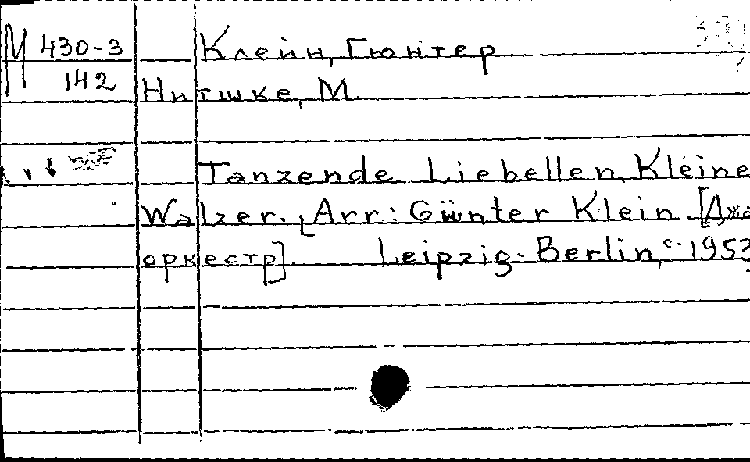 М 430-3
142
Клейн, Гюнтер
Нитшке, М.
Tanzende Liebellen. Kleine
Walzer. Arr: Günter Klein. [Джа
оркестр]. Leipzig-Berlin, c. 1953